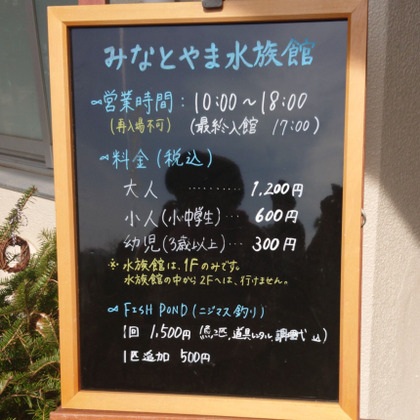 みなとやま水族館
∞営業時間：10:00～18:00
(再入場不可) (最終入館 17:00)
∞料金(税込)
大人 ………… 1,200円
小人(小・中学生)… 600円
幼児(3歳以上)… 300円
※水族館は、1Fのみです。
水族館の中から2Fへは、行けません。
∞ FISH POND (ニジマス釣り)
1回 1,500円 (魚2匹、道具レンタル、調理代込)
1匹追加 500円